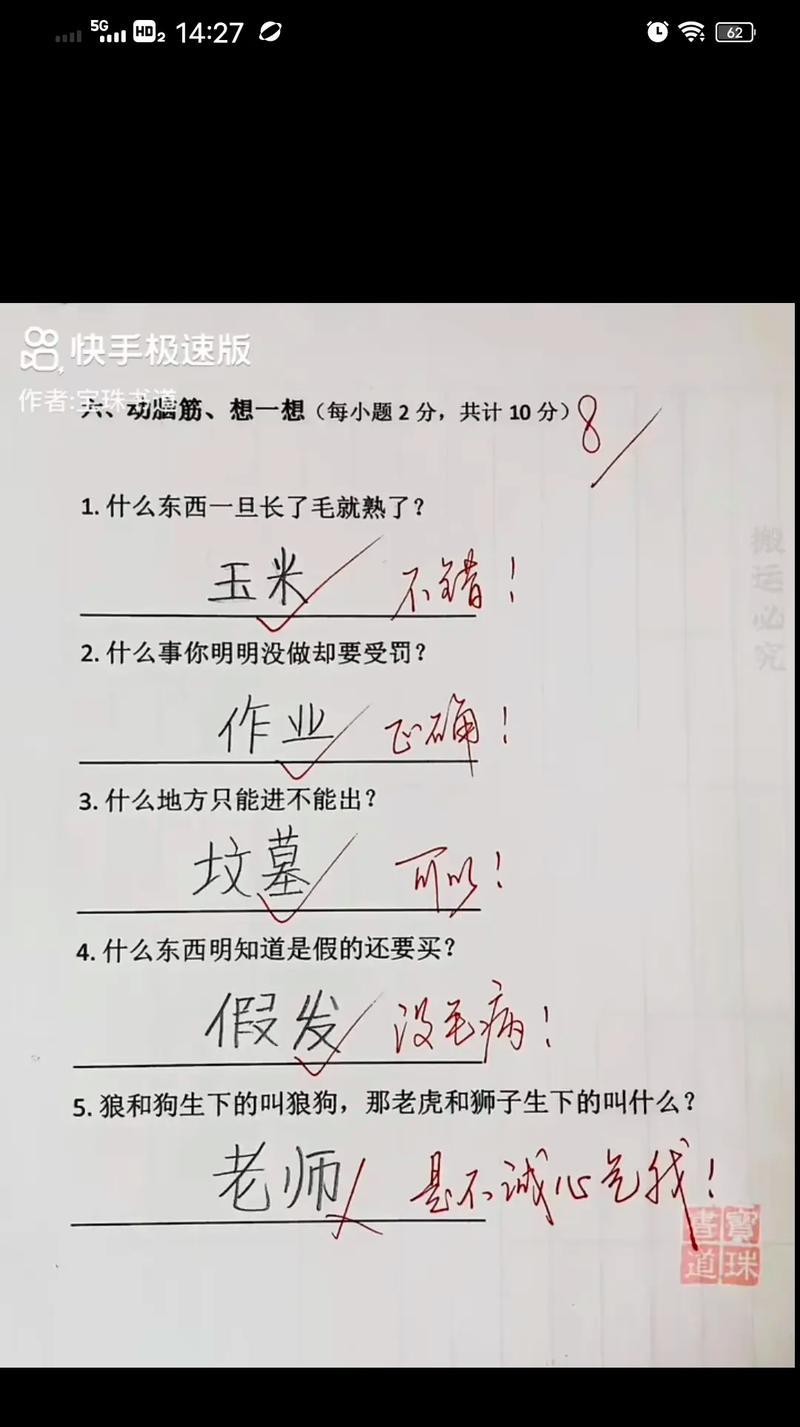 5G HD 2 14:27 62
快手极速版
作者:宝珠书道
六、动脑筋、想一想（每小题 2 分，共计 10 分） 8
1. 什么东西一旦长了毛就熟了？
玉米 不错！
搬运必究
2. 什么事你明明没做却要受罚？
作业 正确！
3. 什么地方只能进不能出？
坟墓 可以！
4. 什么东西明知道是假的还要买？
假发 没毛病！
5. 狼和狗生下的叫狼狗，那老虎和狮子生下的叫什么？
老师 是不诚心气我！
寶珠書道